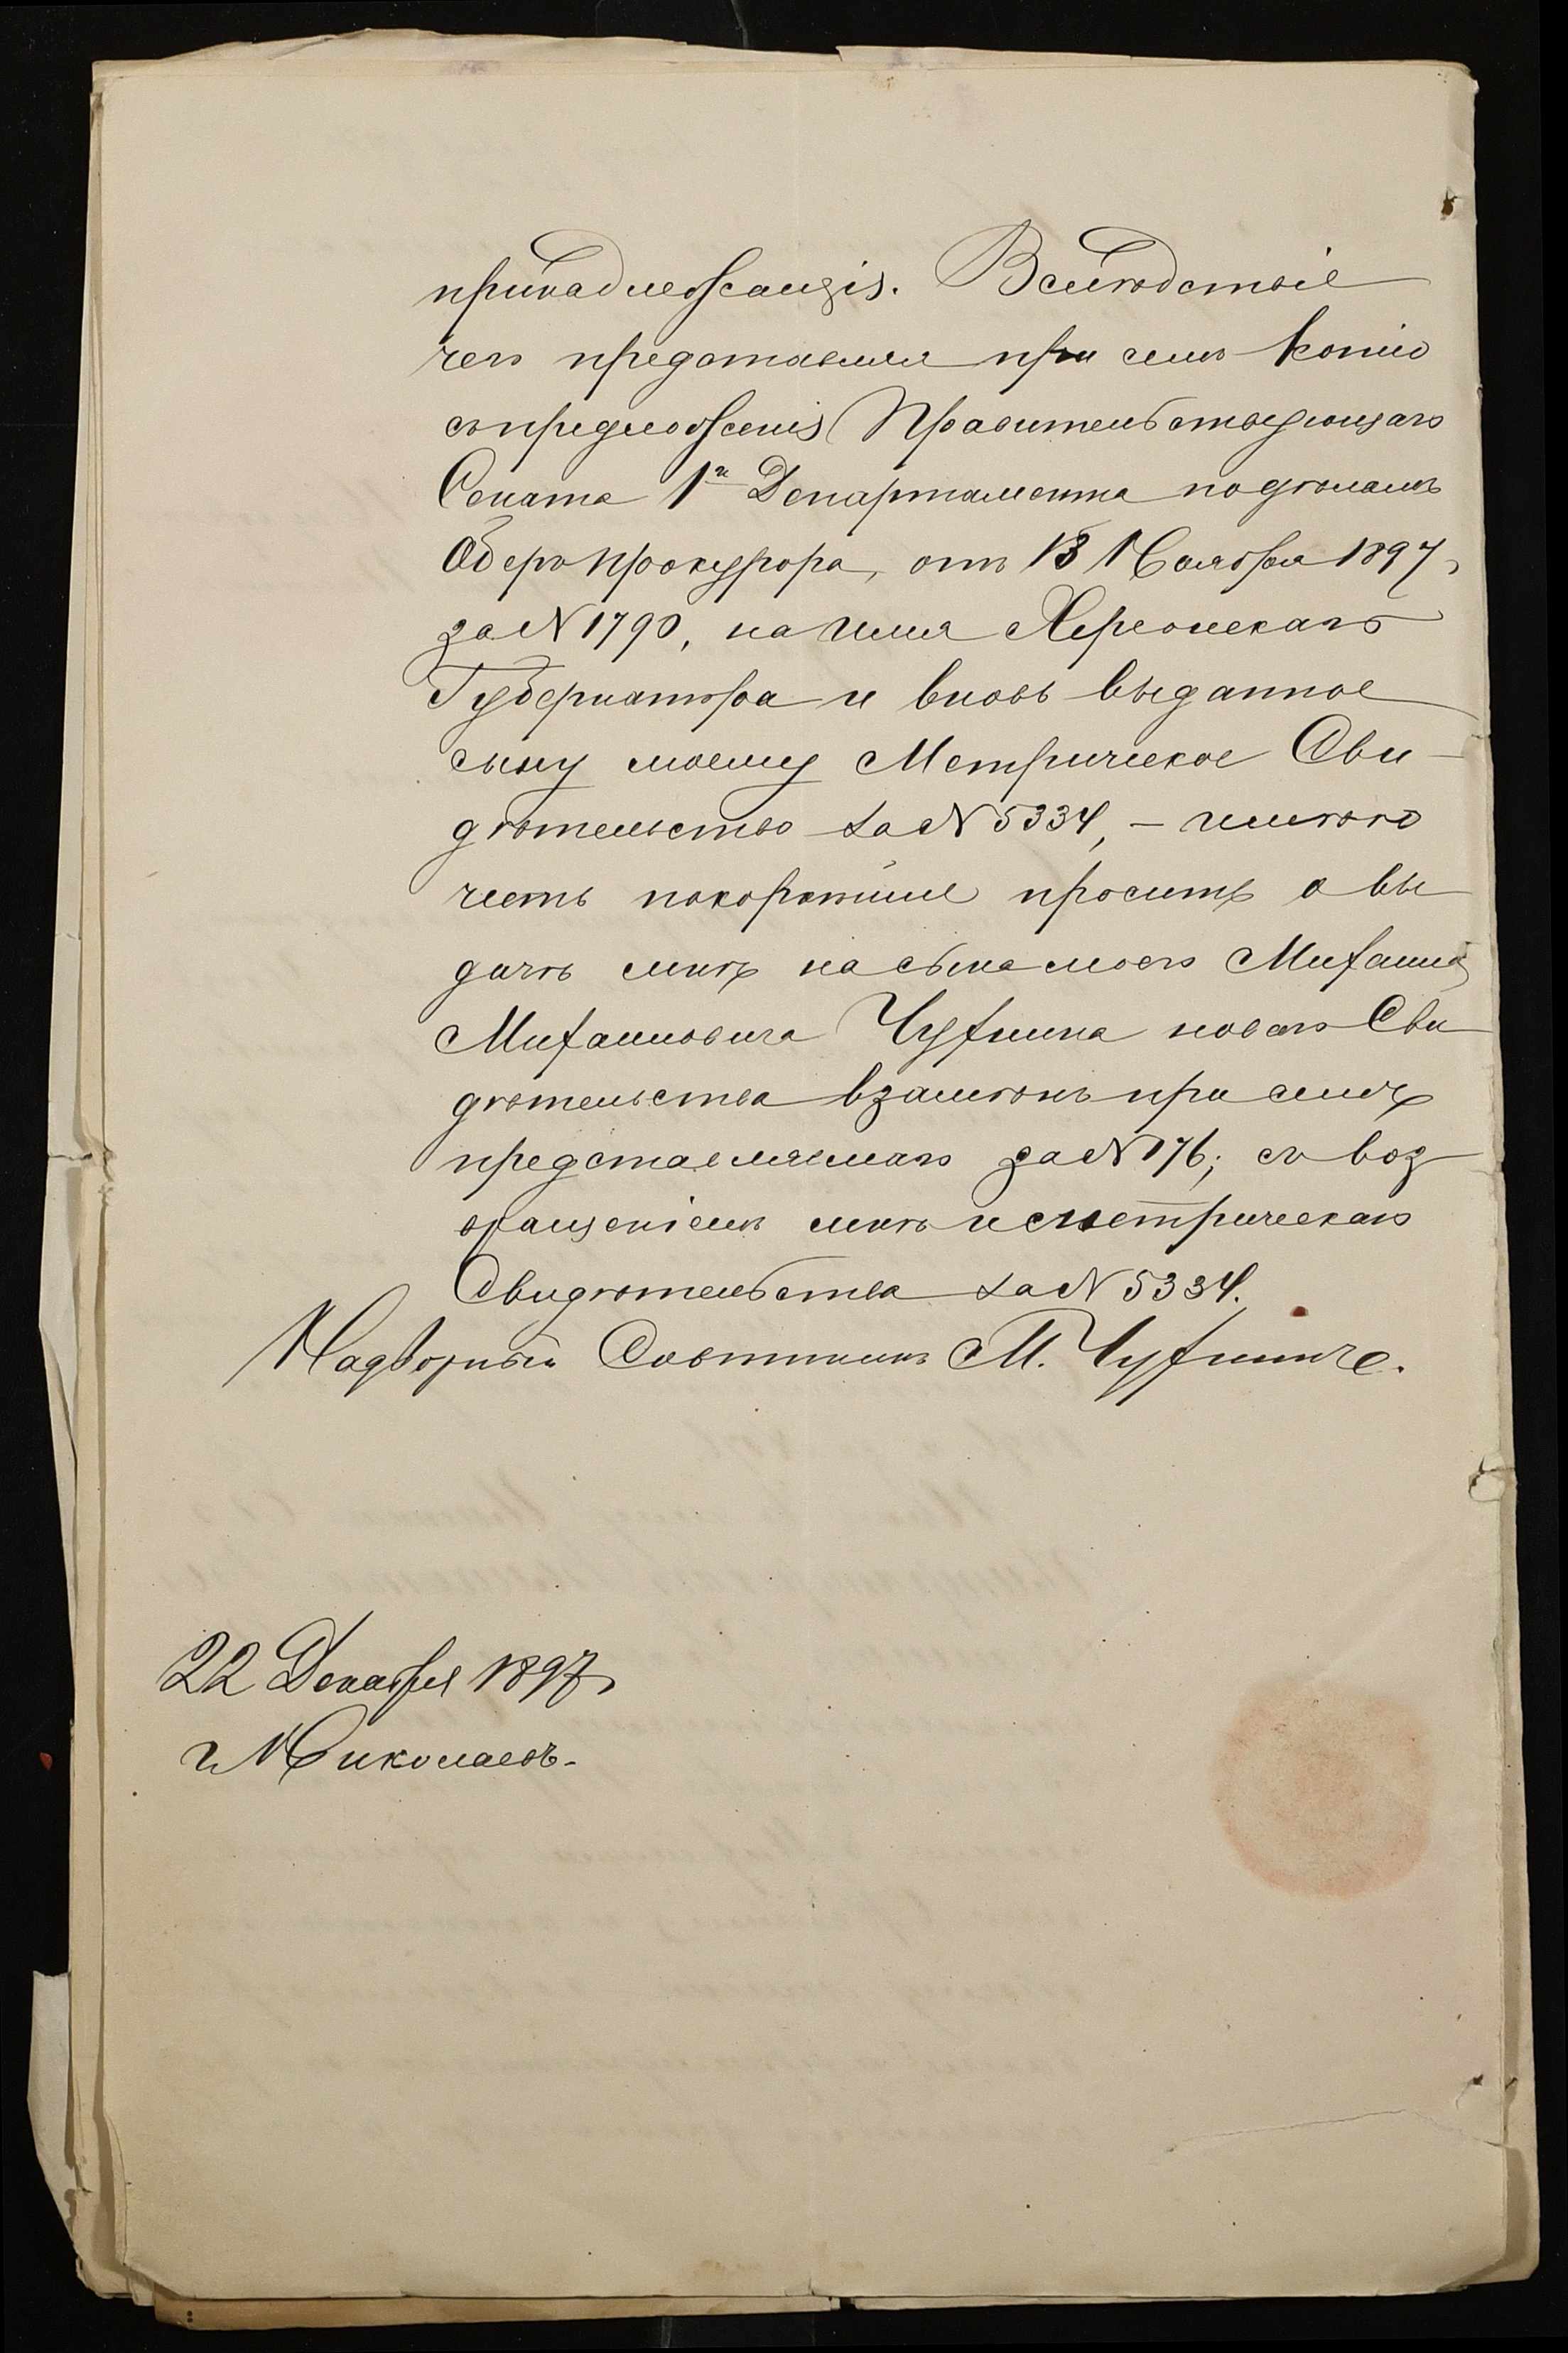 принадлежащія. Вслѣдствіе
чего представляя при семъ копію
съ предложенія Правительствующаго
Сената 1го Департамента по дѣламъ
Оберъ прокурора, отъ 13 Ноября 1897 г.
за № 1790, на имя Херсонскаго
Губернатора и вновь выданное
сыну моему Метрическое Сви-
дѣтельство за № 5334, – имѣю
честь покорнѣйше просить о вы
дачѣ мнѣ на сына моего Михаила
Михаиловича Чухнина новаго Сви
дѣтельства взамѣнъ при семъ
представляемаго за № 176; съ воз
вращеніемъ мнѣ и метрическаго
Свидѣтельства за № 5334.
Надворный Совѣтникъ М. Чухнинъ.
22 Декабря 1897 г.
г Николаевъ.